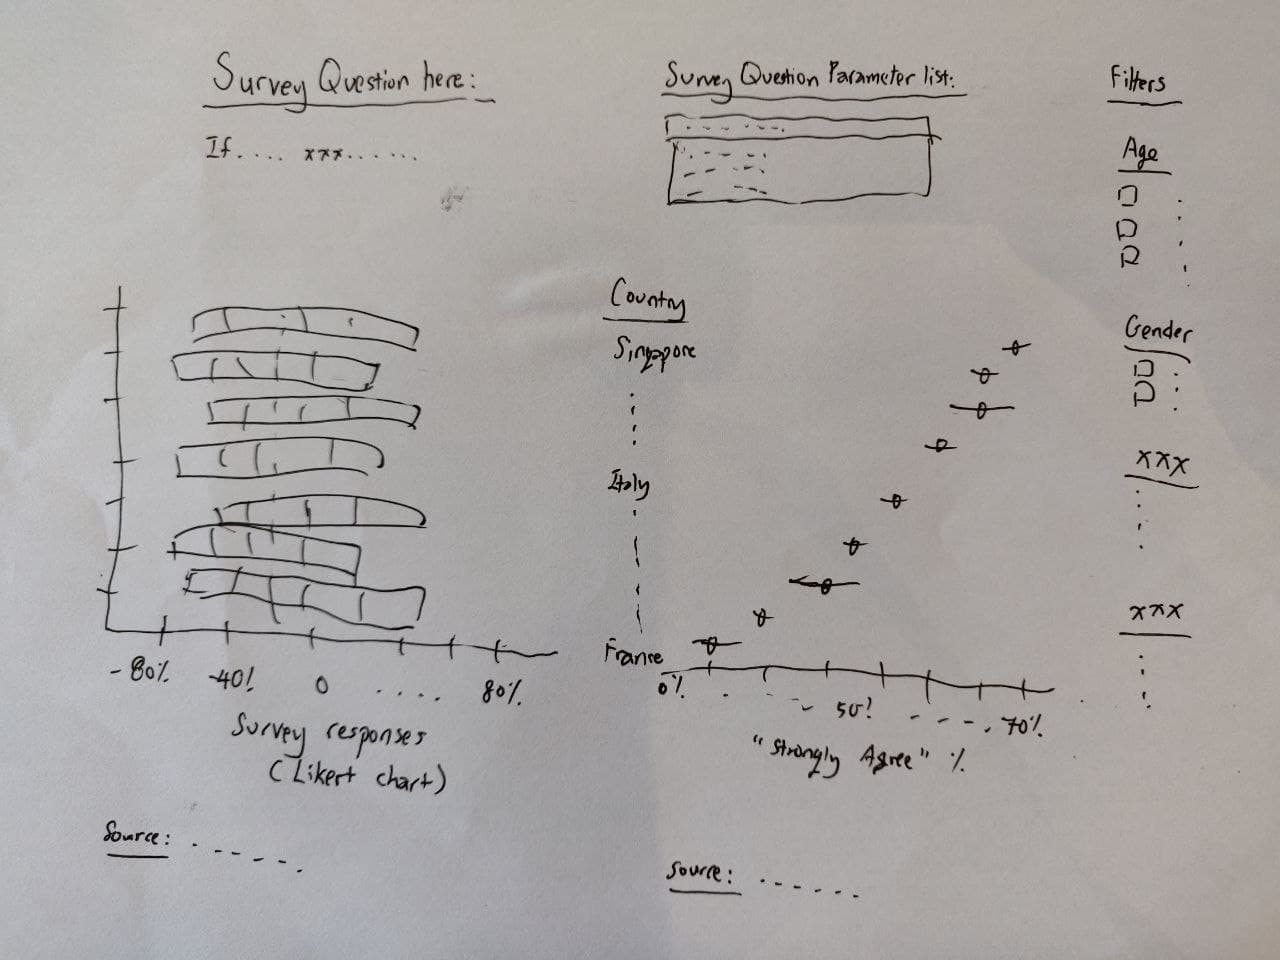 Survey Question here:
If.... xxx......
Survey Question Parameter list:
Filters
Age
Gender
xxx
xxx
Country
Singapore
Italy
France
-80% -40! 0 .... 80%
Survey responses
(Likert chart)
0% 50! 70%
"Strongly Agree" %
Source:
Source: